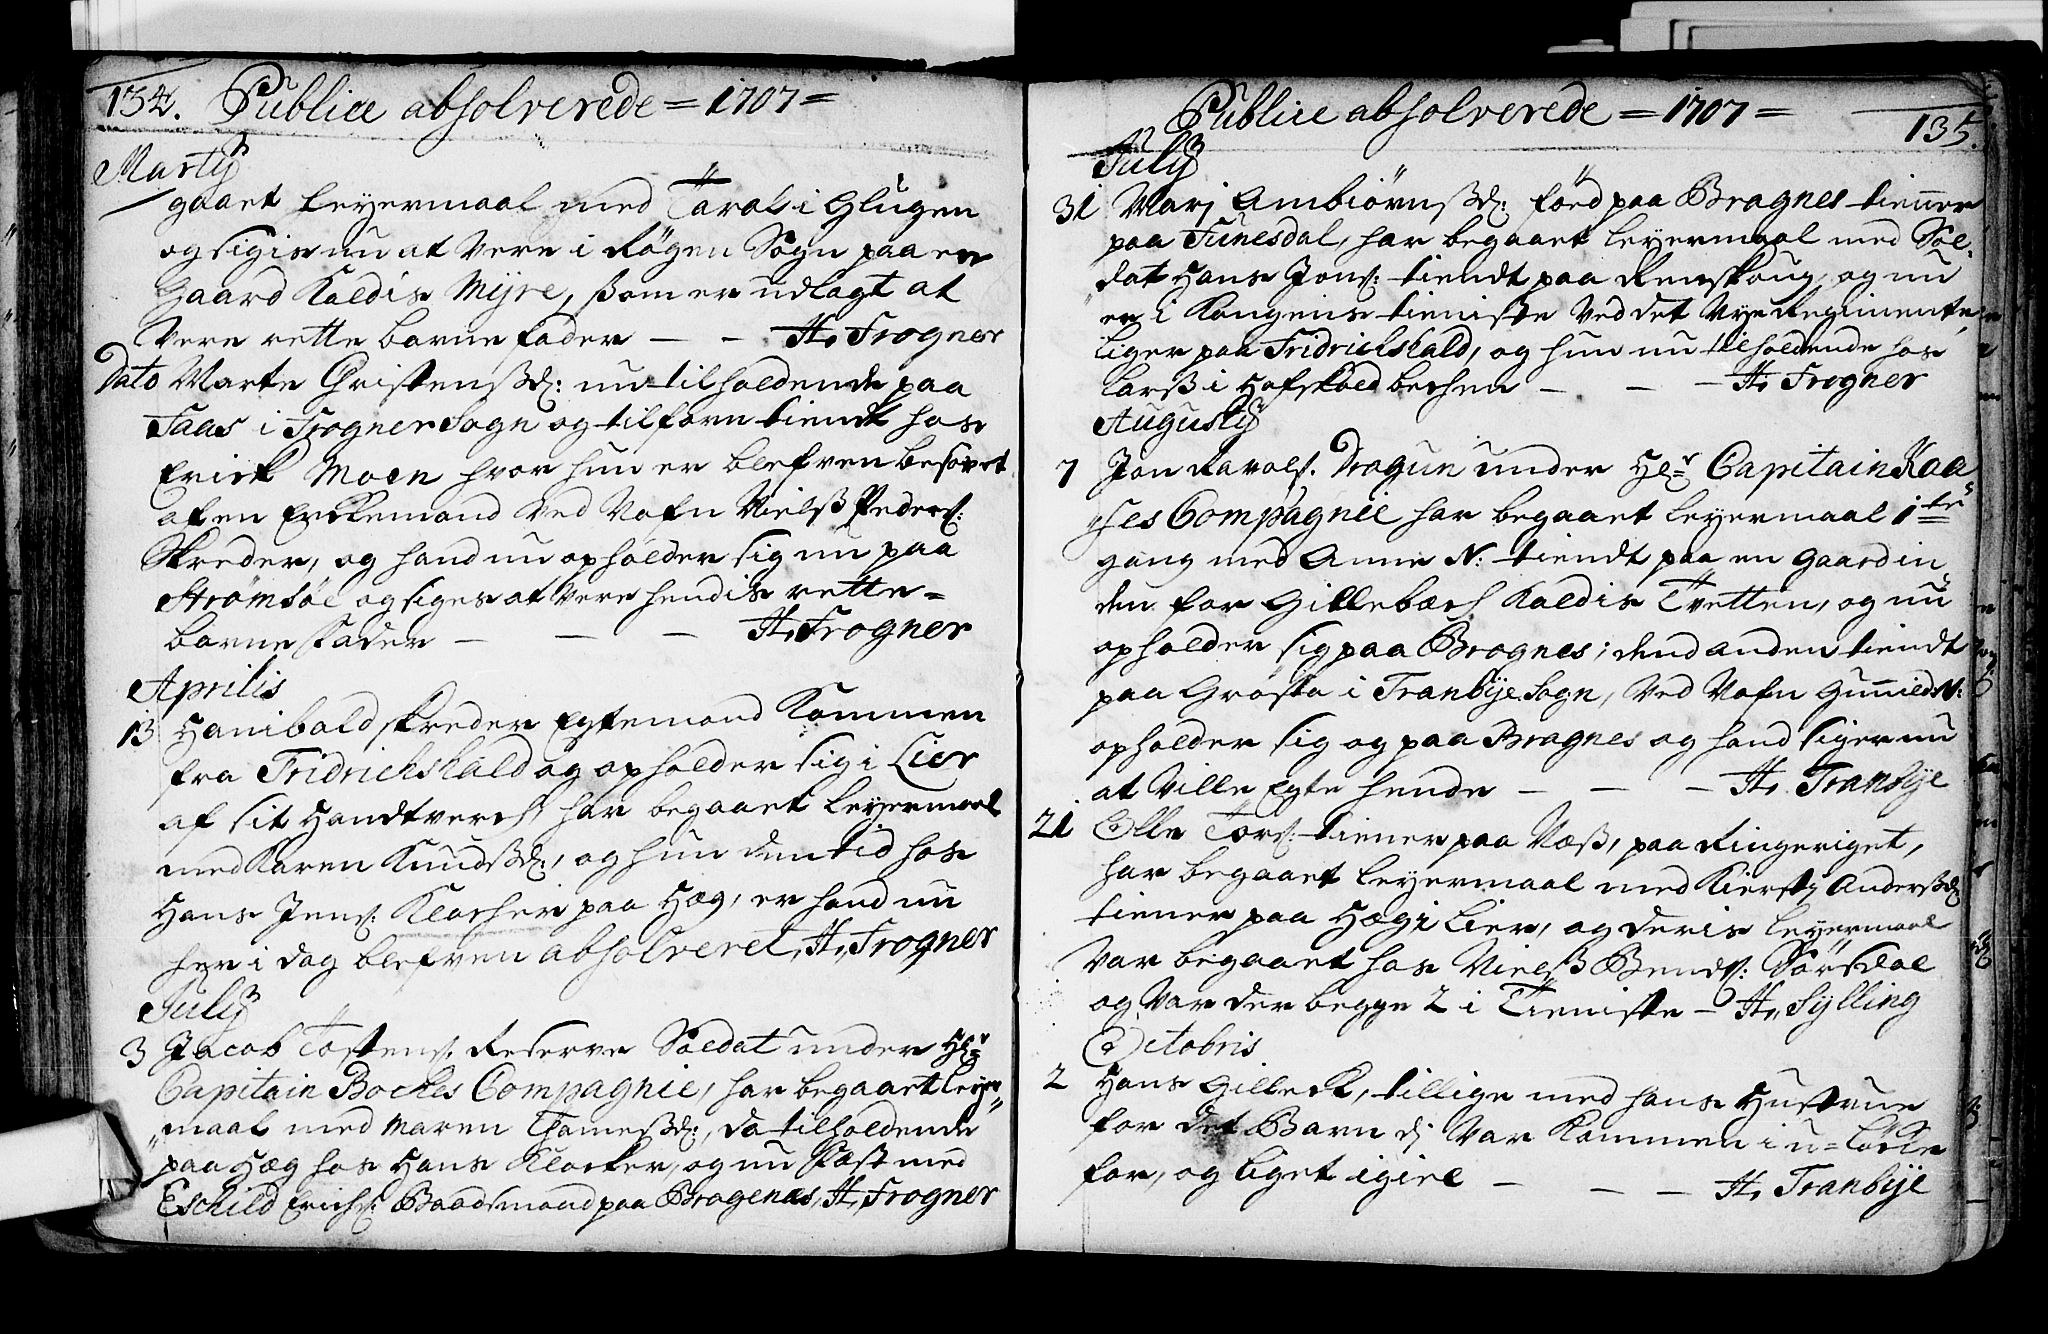 134. Publice absolverede = 1707 =
Martÿ
gaaet Leyermaal med Taral i Glugen
og sigis nu at Vere i Røgen Sogn paa en
Gaard Kaldis Mÿre, som er udlagt at
Vere rette barnefader — — H. Frogner
Dato Marte Christensdr: nu tilholdende paa
Faas i Frogner Sogn og tilforn tiendt hos
Erick Moen hvor hun er blefven besofvet
af en Enckemand Ved Nafn Nielß Peders:
Skreder, og hand nu opholder sig nu paa
Strømsøe og siges at Vere hendis rette =
barnefader — — — H. Frogner
Aprilis
13 Hanibald skreder Egtemand Kommen
fra Fridrichshald og opholder sig i Lier
af sit Handtverch, har begaaet Leyermaal
med Karen Knudsdr:, og hun den tid hos
Hans Jens: Klocher paa Hæg, er hand nu
her i dag blefven absolveret, H. Frogner
Julÿ
3 Jacob Tostens: Reserve Soldat under Hr
Capitain Bockes Compagnie, har begaaet leyer
maal med Maren Thamesdr:, da tilholdende
paa Hæg hos Hans Klocker, og nu Fæst med
Eschild Erichs: Baadsmand paa Bragenæs, H. Frogner
Publice absolverede = 1707 =
135.
Julÿ
31 Mari Ambiørnsdr: føed paa Bragnes tiener
paa Junesdal, har begaaet leyermaal med Sol
dat Hans Jons: tiendt paa Renskoug, og nu
er i Kongens tieniste Ved det Nye Regimente,
liger paa Fridrichshald, og hun nu tilholdende hos
Larß i Hafskold bechen — — — H. Frogner
Augustÿ
7 Jon Ravals: Dragun under Hr Capitain Kaa
ses Compagnie har begaaet leyermaal 1te
gang med Anne N: tiendt paa en gaard in
den for Gillebæch Kaldis Tvetten, og nu
opholder sig paa Bragnes; dend anden tiendt
paa Grøsta i Tranbÿe Sogn, Ved Nafn Gunild N:
opholder sig og paa Bragnes og hand siger nu
at Ville Egte hende — — — H. Tranbÿe
21 Olle Tors: tiener paa Næß, paa Ringeriget,
har begaaet leyermaal med Kiersti Andersdr
tiener paa Hæg i Lier, og deris leyermaal
Var begaaet hos Nielß Bends: Sørsdal
og Var der begge 2 i Tieniste — H. Sylling
Octobris
2 Hans Gilleck, tillige med hans Hustrue
for det Barn di Var Kommen i u=løcke
for, og liget igiel — — — H. Tranbÿe